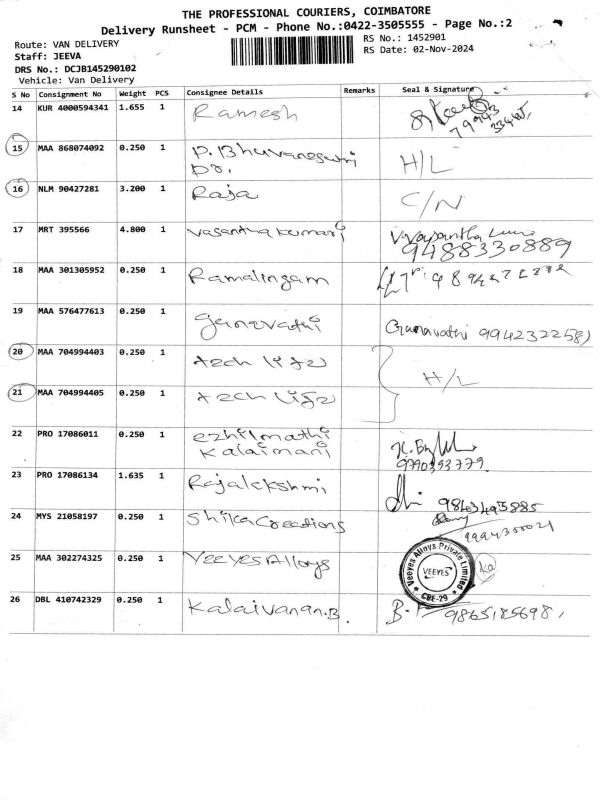 THE PROFESSIONAL COURIERS, COIMBATORE
Delivery Runsheet - PCM - Phone No.:0422-3505555 - Page No.:2
Route: VAN DELIVERY
RS No.: 1452901
Staff: JEEVA
RS Date: 02-Nov-2024
DRS No.: DCJB145290102
Vehicle: Van Delivery
S No Consignment No Weight PCS Consignee Details Remarks Seal & Signature
14 KUR 4000594341 1.655 1 Ramesh
15 MAA 868074092 0.250 1 P. Bhuvaneswri H/L
Dr.
16 NLM 90427281 3.200 1 Raja C/N
17 MRT 395566 4.800 1 Vasantha kumari
9488330889
18 MAA 301305952 0.250 1 Ramalingam
19 MAA 576477613 0.250 1 gunavathi Gunavathi 9942322581
20 MAA 704994403 0.250 1 tech life H/L
21 MAA 704994405 0.250 1 tech life
22 PRO 17086011 0.250 1 ezhilmathi
kalaimani
9790393779
23 PRO 17086134 1.635 1 Rajalekshmi
24 MYS 21058197 0.250 1 Shika Creations
25 MAA 302274325 0.250 1 Veeyes Alloys
Veeyes Alloys Private Limited
VEEYES
CBE-29
26 DBL 410742329 0.250 1 Kalaivanan.B 9865185698